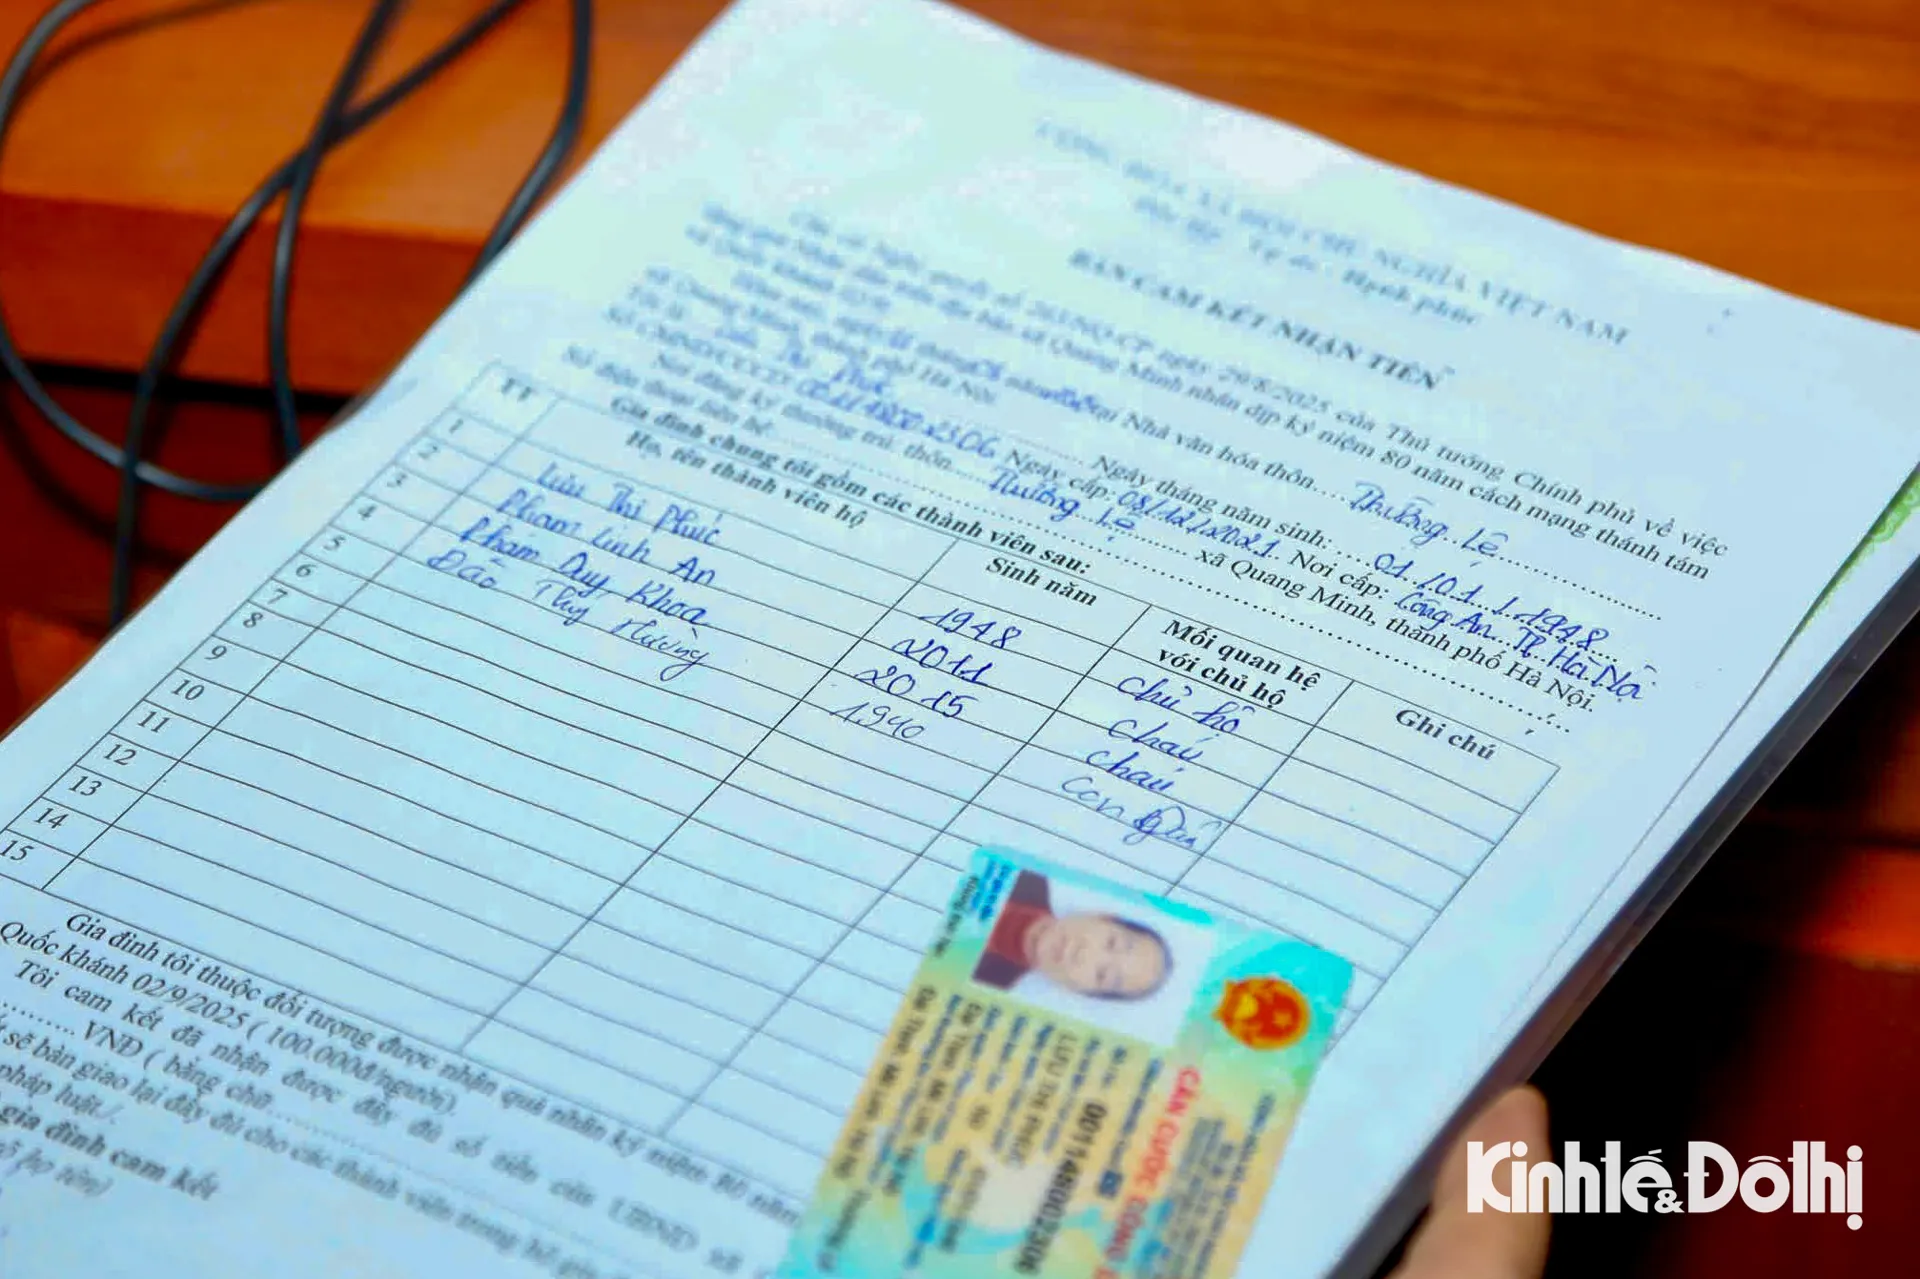 CỘNG HÒA XÃ HỘI CHỦ NGHĨA VIỆT NAM
Độc lập - Tự do - Hạnh phúc
BẢN CAM KẾT NHẬN TIỀN
Căn cứ Nghị quyết số 263/NQ-CP ngày 29/8/2025 của Thủ tướng Chính phủ về việc
nhân dân trên địa bàn xã Quang Minh nhân dịp kỷ niệm 80 năm cách mạng tháng tám
và Quốc khánh 02/9
Hôm nay, ngày tháng năm tại Nhà văn hóa thôn.... Thường Lệ
xã Quang Minh, thành phố Hà Nội
Tôi là: Lưu Thị Phúc Ngày tháng năm sinh: 01/01/1948
Số CMND/CCCD 001148002306 Ngày cấp: 08/12/2021 Nơi cấp: Công An TP Hà Nội
Nơi đăng ký thường trú: thôn Thường Lệ xã Quang Minh, thành phố Hà Nội.
Số điện thoại liên hệ:
Gia đình chúng tôi gồm các thành viên sau:
TT Họ, tên thành viên hộ Sinh năm Mối quan hệ với chủ hộ Ghi chú
1 Lưu Thị Phúc 1948 Chủ hộ
2 Phạm Linh An 2011 Cháu
3 Phạm Duy Khoa 2015 Cháu
4 Đào Thuý Hường 1990 Con dâu
5
6
7
8
9
10
11
12
13
14
15
Gia đình tôi thuộc đối tượng được nhận quà nhân kỷ niệm 80 năm
Quốc khánh 02/9/2025 ( 100.000đ/người).
Tôi cam kết đã nhận được đầy đủ số tiền của UBND
VNĐ ( bằng chữ
sẽ bàn giao lại đầy đủ cho các thành viên trong hộ gia
pháp luật./.
gia đình cam kết
họ tên)
CĂN CƯỚC CÔNG
001148002306
LƯU THỊ PHÚC
Kinhtế&Đôthị